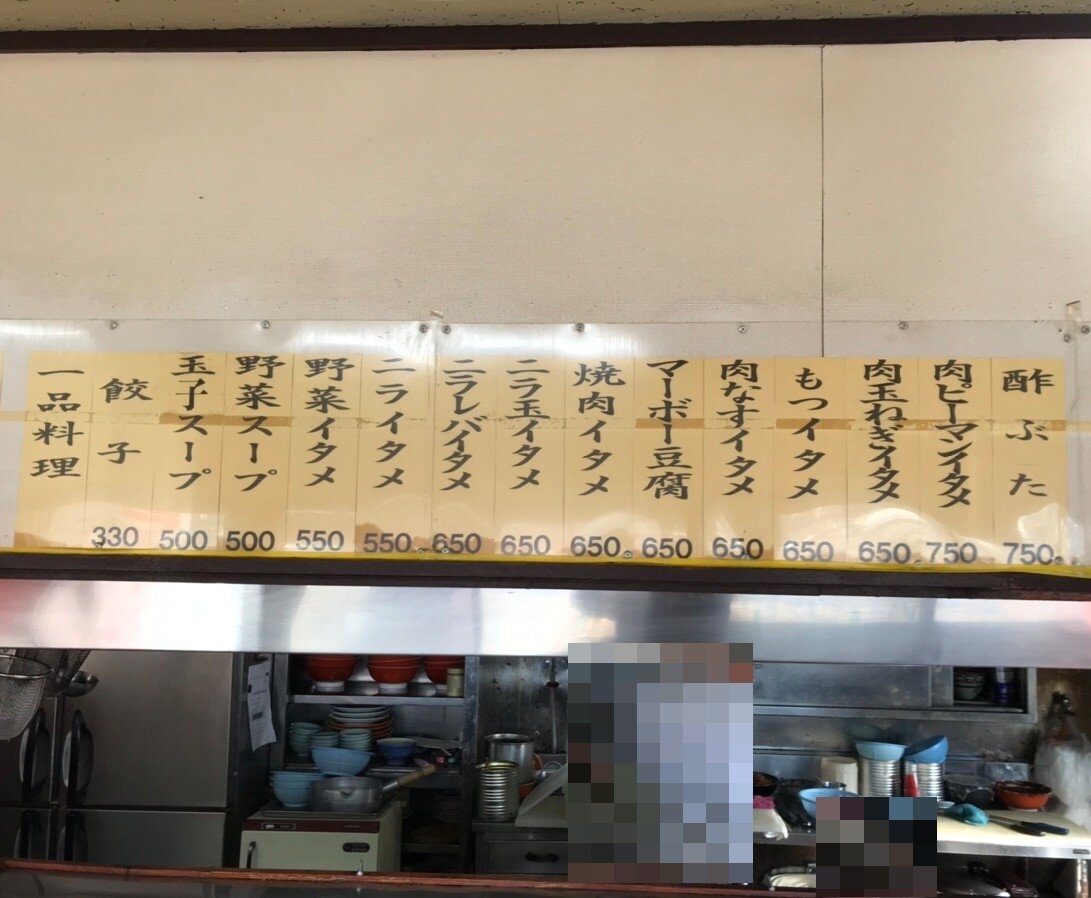 一品料理
餃子
330
玉子スープ
500
野菜スープ
500
野菜イタメ
550
ニライタメ
550
ニラレバイタメ
650
ニラ玉イタメ
650
焼肉イタメ
650
マーボー豆腐
650
肉なすイタメ
650
もつイタメ
650
肉玉ねぎイタメ
650
肉ピーマンイタメ
750
酢ぶた
750